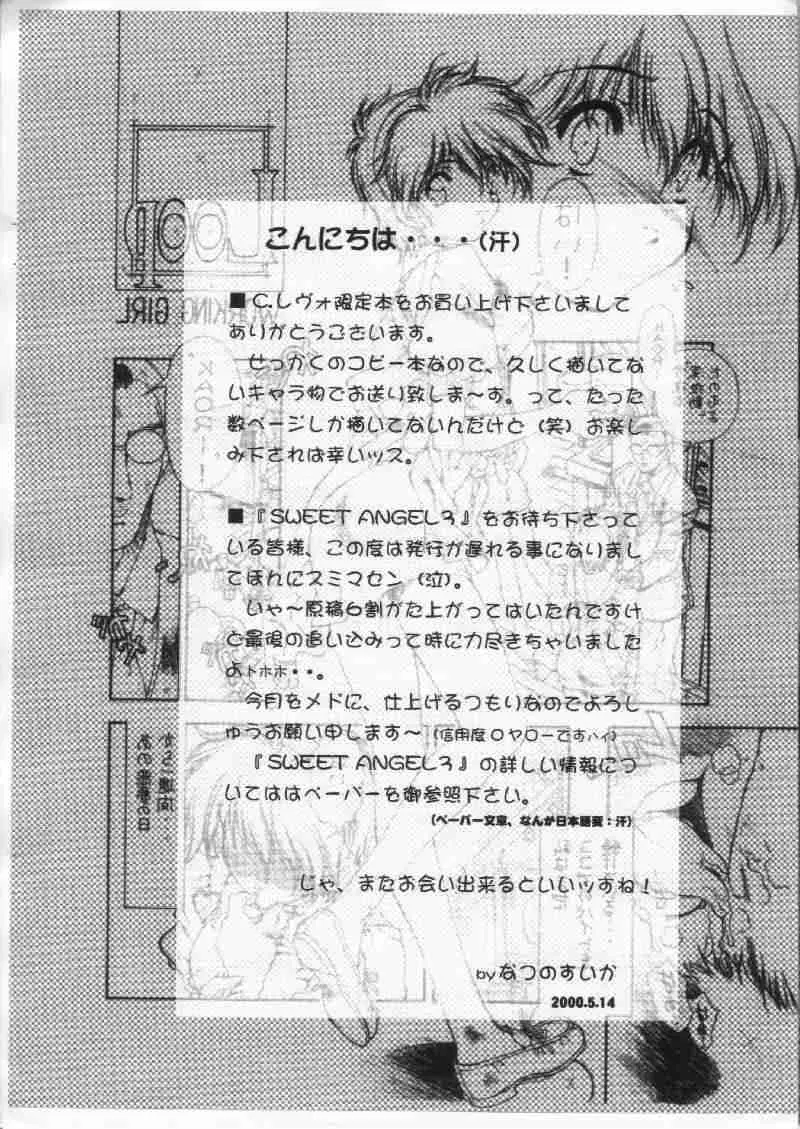 こんにちは・・・(汗)
■C.レヴォ限定本をお買い上げ下さいまして
ありがとうございます。
せっかくのコピー本なので、久しく描いてな
いキャラ物でお送り致しま～す。って、たった
数ページしか描いてないんだけど (笑) お楽し
み下されば幸いッス。
■『SWEET ANGEL3』をお待ち下さって
いる皆様、この度は発行が遅れる事になりまし
てほんにスミマセン (泣)。
いや～原稿6割がた上がってはいたんですけ
ど最後の追い込みって時に力尽きちゃいました
よトホホ・・。
今月をメドに、仕上げるつもりなのでよろし
ゅうお願い申します～ (信用度0ヤローですハイ)
『SWEET ANGEL3』の詳しい情報につ
いてははペーパーを御参照下さい。
(ペーパー文章、なんか日本語変：汗)
じゃ、またお会い出来るといいッすね！
by なつのすいか
2000.5.14
はい！
WORKING GIRL
KAOR